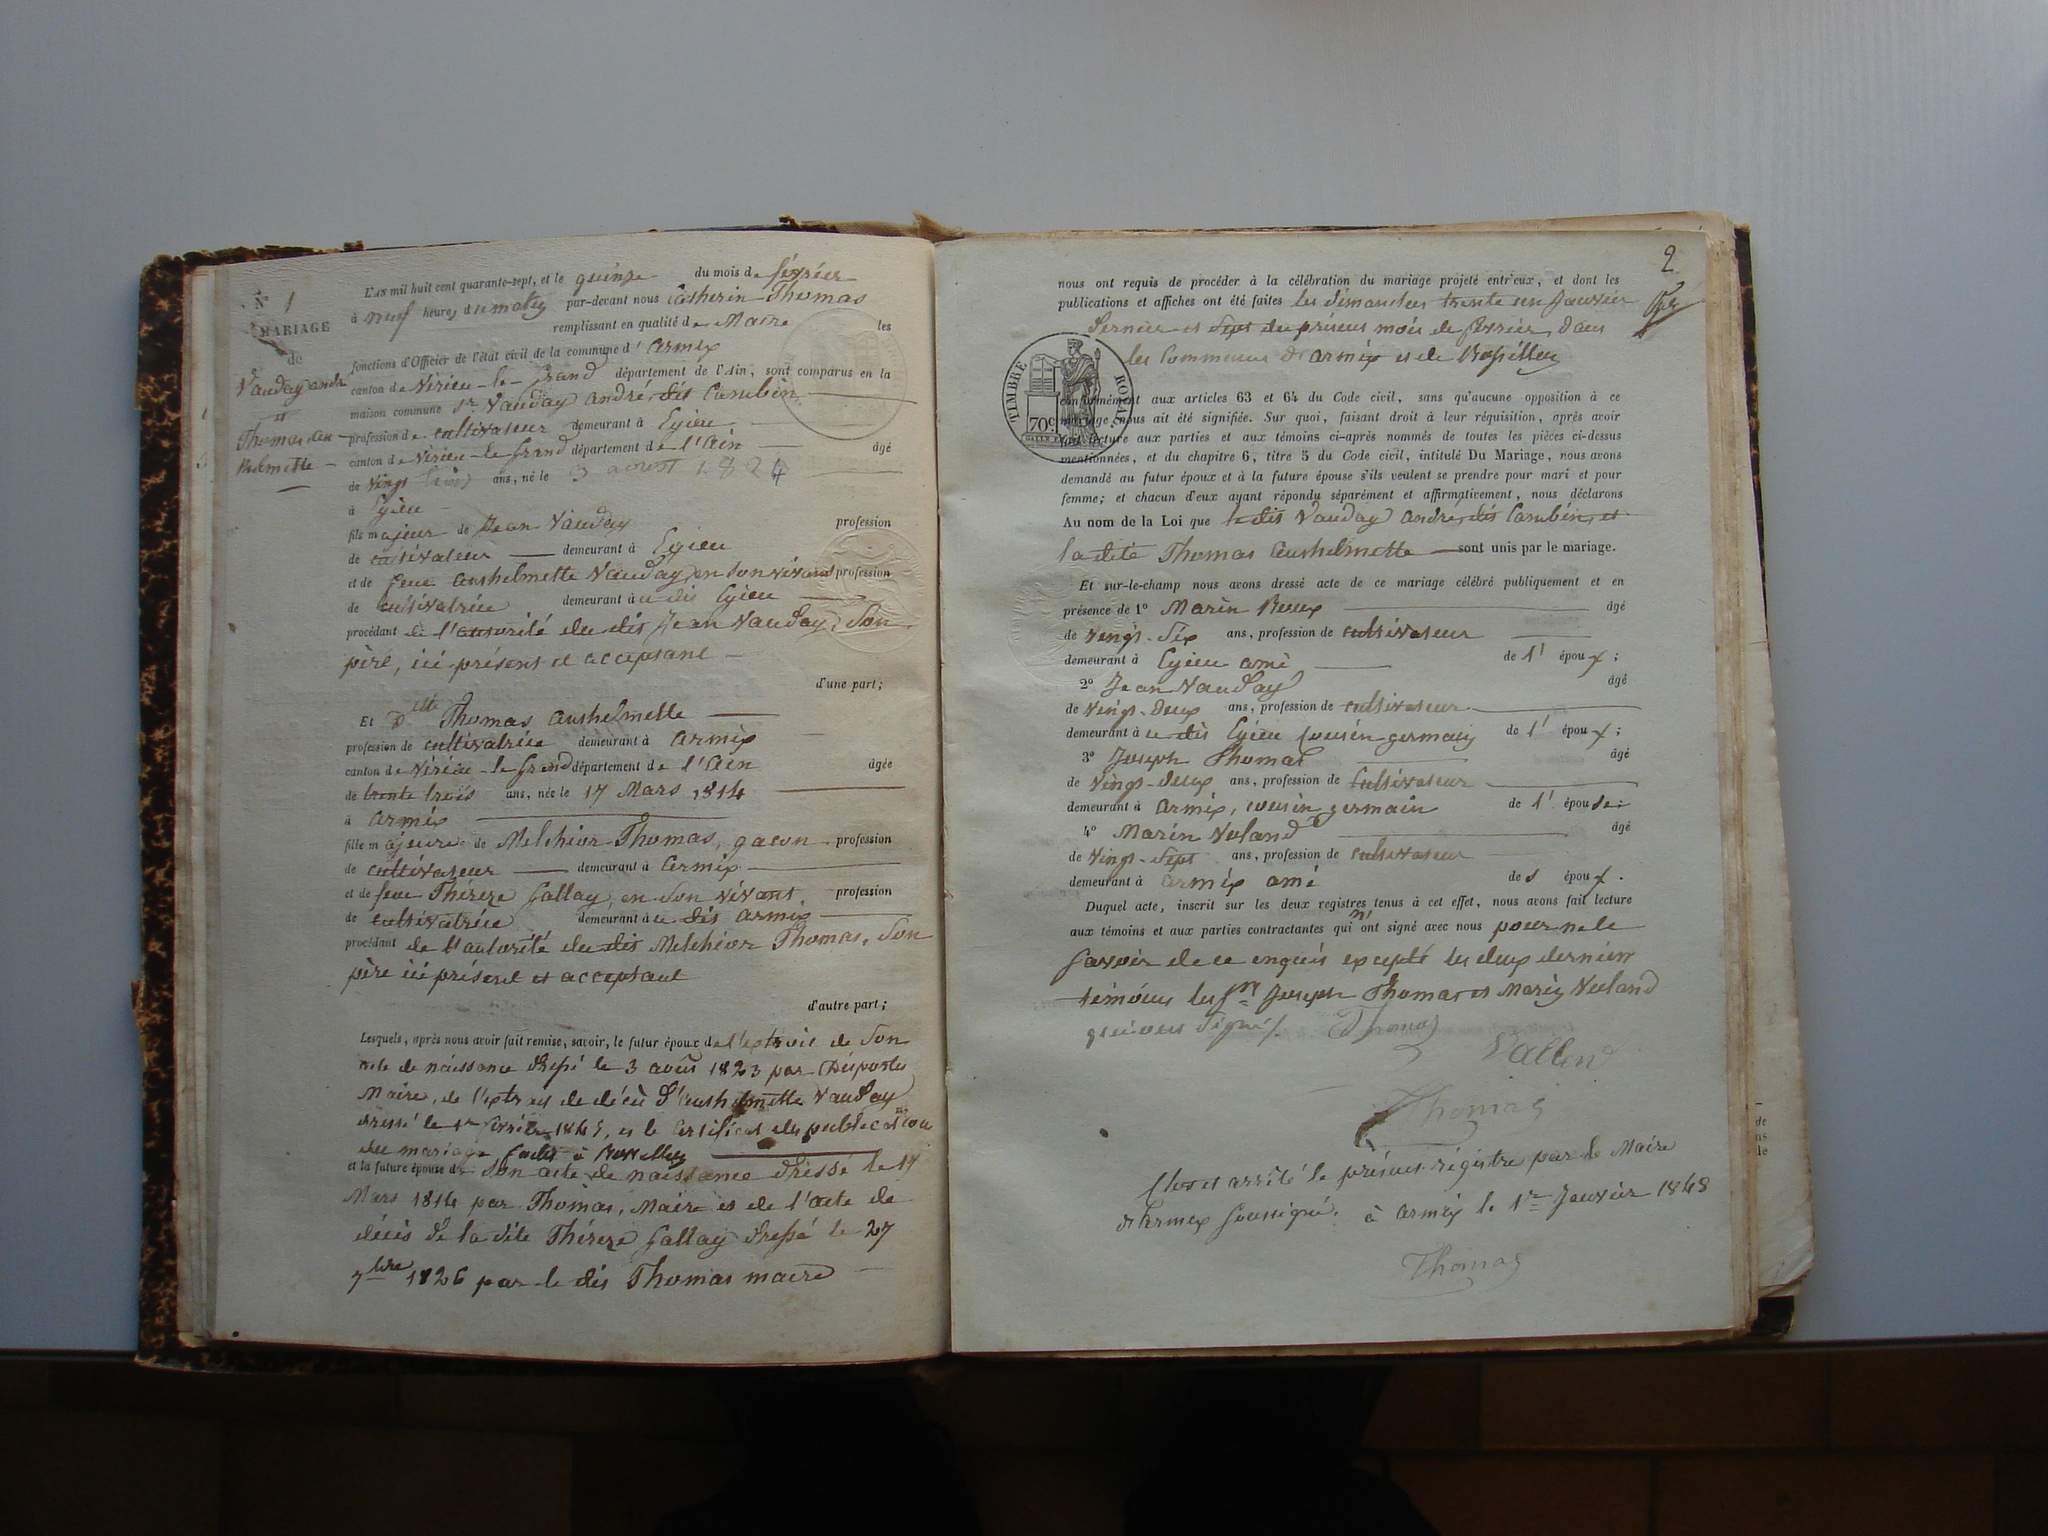 N° 1
MARIAGE
de
Vauday andré
et
Thomas
L'AN mil huit cent quarante-sept, et le quinze du mois de février
à neuf heures du matin par-devant nous Catherin Thomas
remplissant en qualité de Maire les
fonctions d'Officier de l'état civil de la commune d'armix
canton de Virieu-le-Grand département de l'Ain, sont comparus en la
maison commune Sr Vauday andré, dit Combin
profession de cultivateur demeurant à Egieu
canton de Virieu-le-Grand département de l'ain âgé
de vingt trois ans, né le 3 aout 1824
à Egieu
fils majeur de Jean Vauday profession
de cultivateur demeurant à Egieu
et de feue anthelmette Vauday, en son vivant profession
de cultivatrice demeurant au dit Egieu
procédant de l'autorité du dit Jean Vauday, son
père, ici présent et acceptant
d'une part;
Et Delle Thomas anthelmette
profession de cultivatrice demeurant à armix
canton de Virieu-le-Grand département de l'ain âgée
de trente trois ans, née le 17 Mars 1814
à armix
fille majeure de Melchior Thomas, gacon profession
de cultivateur demeurant à armix
et de feue Thérèze Gallay, en son vivant, profession
de cultivatrice demeurant au dit armix
procédant de l'autorité du dit Melchior Thomas, son
père ici présent et acceptant
d'autre part;
Lesquels, après nous avoir fait remise, savoir, le futur époux de l'extrait de son
acte de naissance dressé le 3 août 1823 par Desportes
Maire, de l'extrait de décès d'anthelmette Vauday
dressé le 1er 1845, et le certificat des publications
du mariage faites à Rossillon
et la future épouse de son acte de naissance dressé le 17
Mars 1814 par Thomas, Maire et de l'acte de
décès de la dite Thérèze Gallay dressé le 27
7bre 1826 par le dit Thomas maire
2
nous ont requis de procéder à la célébration du mariage projeté entr'eux, et dont les
publications et affiches ont été faites les dimanches trente un Janvier
dernier et sept du présent mois de février, dans
les Communes d'armix et de Rossillon
TIMBRE ROYAL
70c
conformément aux articles 63 et 64 du Code civil, sans qu'aucune opposition à ce
mariage nous ait été signifiée. Sur quoi, faisant droit à leur réquisition, après avoir
fait lecture aux parties et aux témoins ci-après nommés de toutes les pièces ci-dessus
mentionnées, et du chapitre 6, titre 5 du Code civil, intitulé Du Mariage, nous avons
demandé au futur époux et à la future épouse s'ils veulent se prendre pour mari et pour
femme; et chacun d'eux ayant répondu séparément et affirmativement, nous déclarons
Au nom de la Loi que le dit Vauday andré, dit Combin, et
la dite Thomas anthelmette sont unis par le mariage.
Et sur-le-champ nous avons dressé acte de ce mariage célébré publiquement et en
présence de 1° Marin Roux âgé
de vingt-six ans, profession de cultivateur
demeurant à Egieu ami de l' époux;
2° Jean Vauday âgé
de vingt-deux ans, profession de cultivateur
demeurant au dit Egieu cousin germain de l' époux;
3° Joseph Thomas âgé
de vingt-deux ans, profession de cultivateur
demeurant à armix, cousin germain de l' épouse:
4° Marin Voland âgé
de vingt-sept ans, profession de cultivateur
demeurant à armix ami des époux.
Duquel acte, inscrit sur les deux registres tenus à cet effet, nous avons fait lecture
aux témoins et aux parties contractantes qui n'ont signé avec nous pour ne le
savoir de ce enquis excepté les deux derniers
témoins les Srs Joseph Thomas et Marin Voland
qui ont signé.
Thomas
Vallin
Thomas
Clos et arrêté le présent registre par le Maire
d'armix soussigné. à armix le 1er Janvier 1848
Thomas